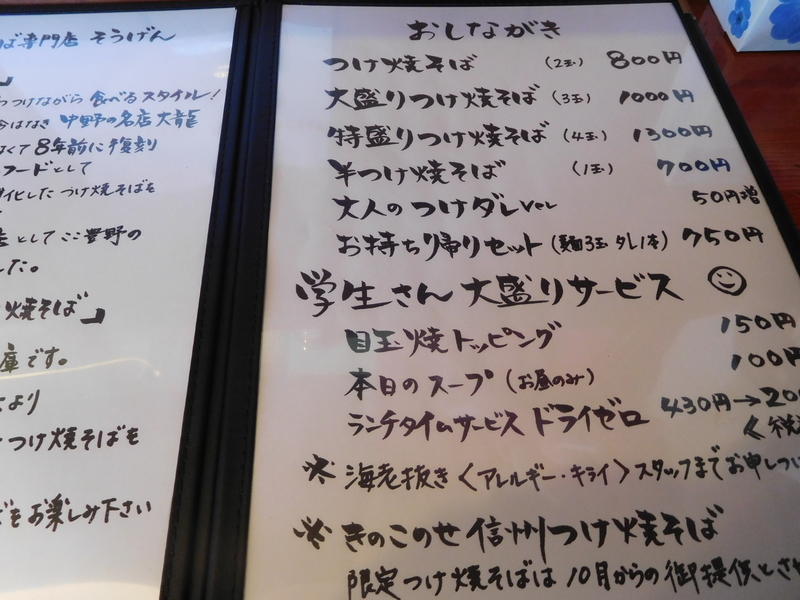 ば専門店 そうげん
」
つけながら 食べるスタイル!
今はなき 中野の名店大龍
なくて8年前に復刻
フードとして
イ化した つけ焼そばを
店として ここ豊野の
した。
焼そば」
庫です。
より
つけ焼そばも
もお楽しみ下さい
おしながき
つけ焼そば (2玉) 800円
大盛りつけ焼そば (3玉) 1000円
特盛りつけ焼そば (4玉) 1300円
半つけ焼そば (1玉) 700円
大人のつけダレver 50円増
お持ち帰りセット (麺3玉 タレ1本) 750円
学生さん 大盛りサービス
目玉焼トッピング 150円
本日のスープ (お昼のみ) 100円
ランチタイムサービス ドライゼロ 430円→200
※ 海老抜き〈アレルギー・キライ〉スタッフまでお申しつけ
※ きのこのせ 信州つけ焼そば
限定つけ焼そばは 10月からの御提供とさせ